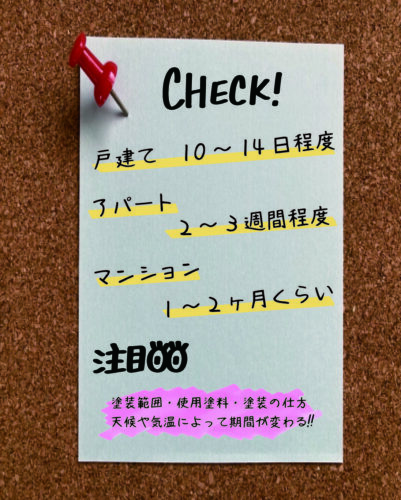 CHECK!
戸建て 10〜14日程度
アパート
2〜3週間程度
マンション
1〜2ヶ月くらい
注目
塗装範囲・使用塗料・塗装の仕方
天候や気温によって期間が変わる!!